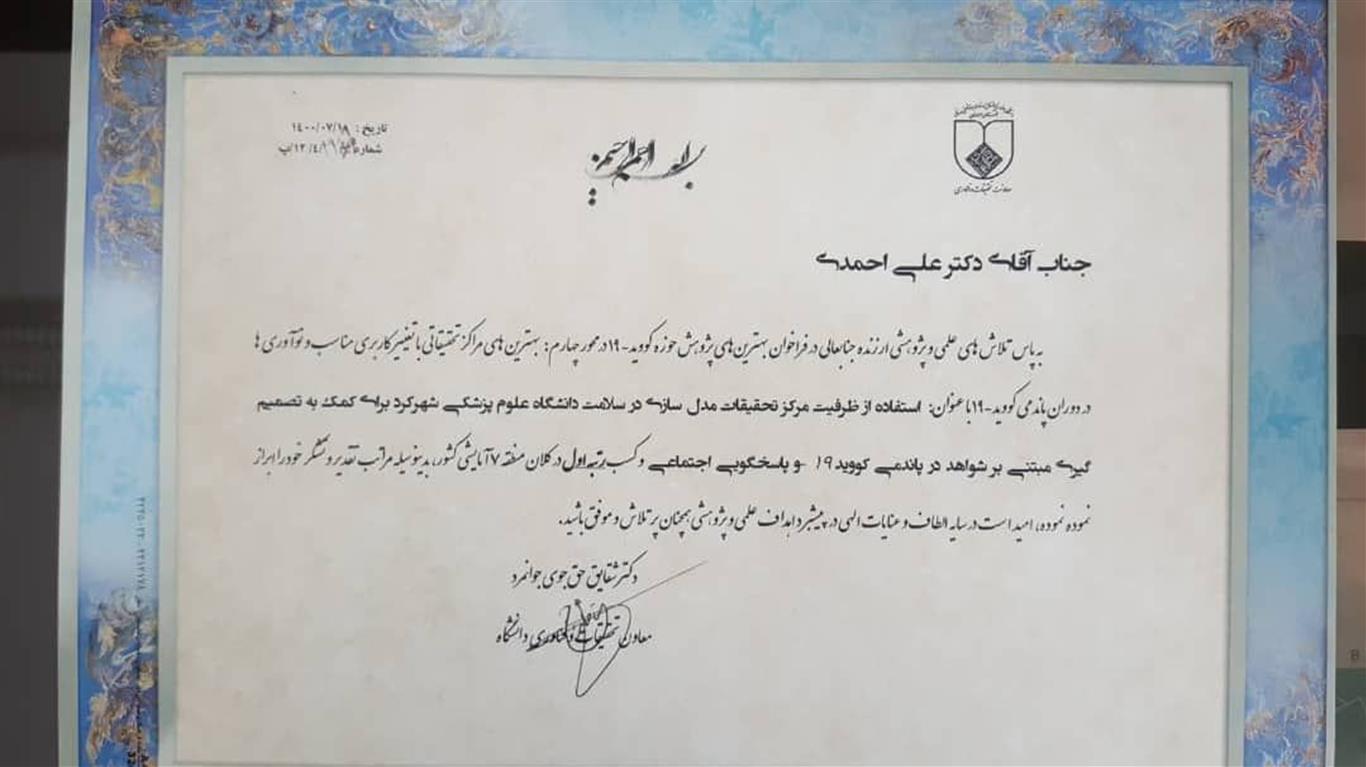 تاریخ : ۱۴۰۰/۰۷/۱۹
شماره
بسم الله الرحمن الرحیم
معاونت تحقیقات و فناوری
جناب آقای دکتر علی احمدی
به پاس تلاش های علمی و پژوهشی ارزنده جنابعالی در فراخوان بهترین های پژوهش حوزه کووید-۱۹ در محور چهارم: بهترین های مراکز تحقیقاتی با تغییر کاربری مناسب و نوآوری ها
در دوران پاندمی کووید-۱۹ با عنوان: استفاده از ظرفیت مرکز تحقیقات مدل سازی در سلامت دانشگاه علوم پزشکی شهرکرد برای کمک به تصمیم
گیری مبتنی بر شواهد در پاندمی کووید ۱۹- و پاسخگویی اجتماعی و کسب رتبه اول در کلان منطقه ۷ آمایشی کشور، بدینوسیله مراتب تقدیر و تشکر خود را ابراز
نموده نموده، امید است در سایه الطاف و عنایات الهی در پیشبرد اهداف علمی و پژوهشی همچنان پر تلاش و موفق باشید.
دکتر شقایق حق جوی جوانمرد
معاون تحقیقات و فناوری دانشگاه